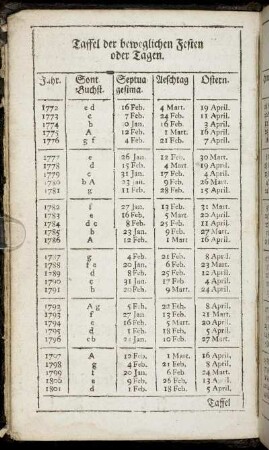 Taffel der beweglichen Festen
oder Tagen.
Jahr. Sont Buchst. Septua gesima. Aeschtag Ostern.
1772 e d 16 Feb. 4 Mart. 19 April.
1773 c 7 Feb. 24 Feb. 11 April.
1774 b 30 Jan. 16 Feb. 3 April.
1775 A 12 Feb. 1 Mart 16 April.
1776 g f 4 Feb. 21 Feb. 7 April.
1777 e 26 Jan. 12 Feb. 30 Mart.
1778 d 15 Feb. 4 Mart. 19 April.
1779 c 31 Jan. 17 Feb. 4 April.
1780 b A 23 Jan. 9 Feb. 26 Mart.
1781 g 11 Feb. 28 Feb. 15 April.
1782 f 27 Jan. 13 Feb. 31 Mart.
1783 e 16 Feb. 5 Mart 20 April.
1784 d c 8 Feb. 25 Feb. 11 April.
1785 b 23 Jan. 9 Feb. 27 Mart.
1786 A 12 Feb. 1 Mart 16 April.
1787 g 4 Feb. 21 Feb. 8 April.
1788 f e 20 Jan. 6 Feb. 23 Mart.
1789 d 8 Feb. 25 Feb. 12 April.
1790 c 31 Jan. 17 Feb. 4 April.
1791 b 20 Feb. 9 Mart. 24 April.
1792 A g 5 Feb. 22 Feb. 8 April.
1793 f 27 Jan. 13 Feb. 31 Mart.
1794 e 16 Feb. 5 Mart 20 April.
1795 d 1 Feb. 18 Feb. 5 April.
1796 c b 24 Jan. 10 Feb. 27 Mart.
1797 A 12 Feb. 1 Mart. 16 April.
1798 g 4 Feb. 21 Feb. 8 April.
1799 f 20 Jan. 6 Feb. 24 Mart.
1800 e 9 Feb. 26 Feb. 13 April.
1801 d 1 Feb. 18 Feb. 5 April.
Taffel